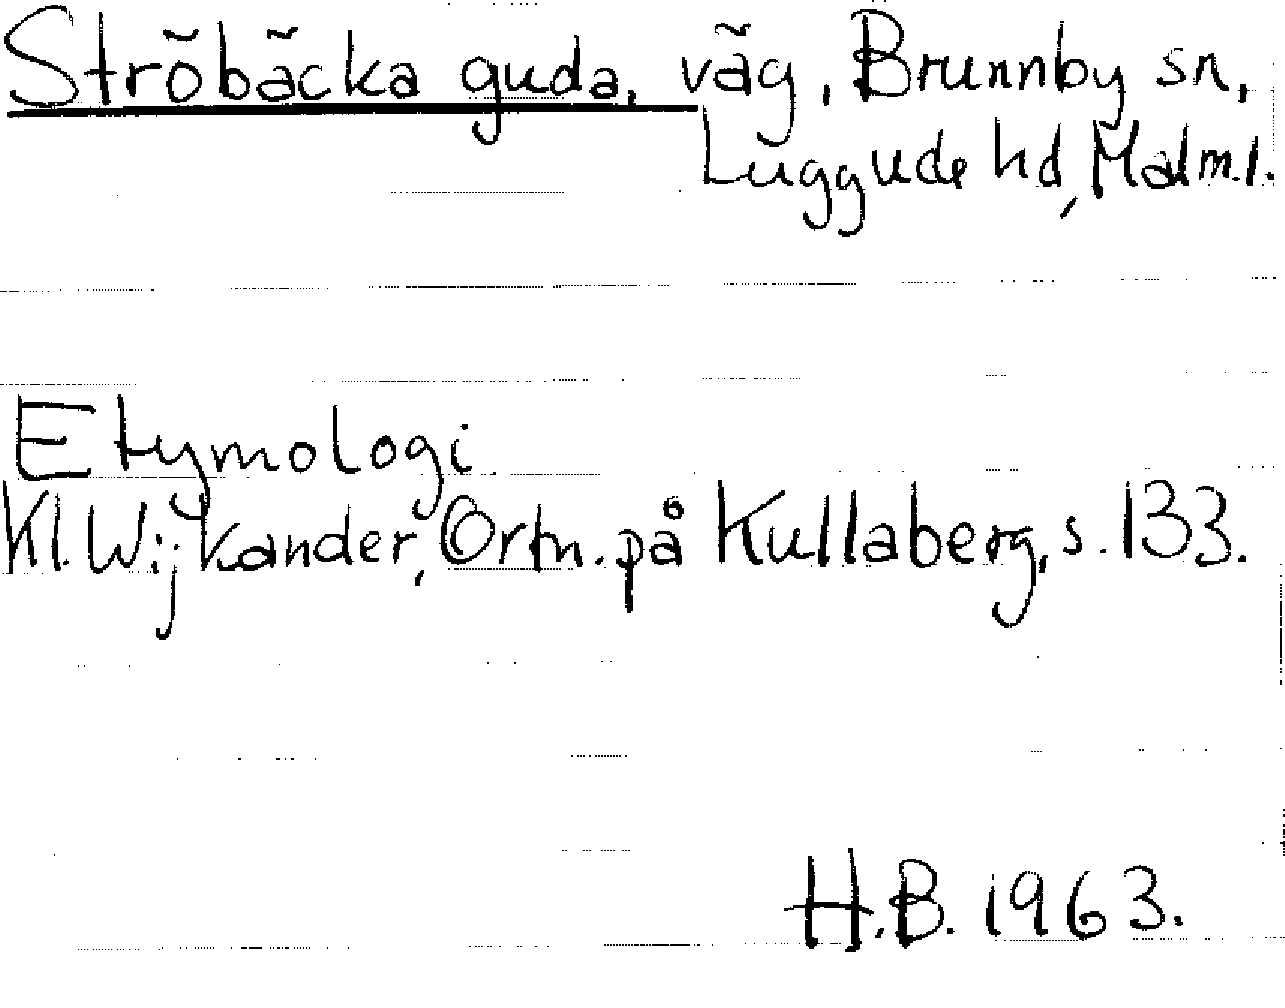 Ströbäcka guda, väg, Brunnby sn,
Luggude hd, Malm.l.
Etymologi
Kl. Wijkander, Ortn. på Kullaberg, s. 133.
H.B. 1963.